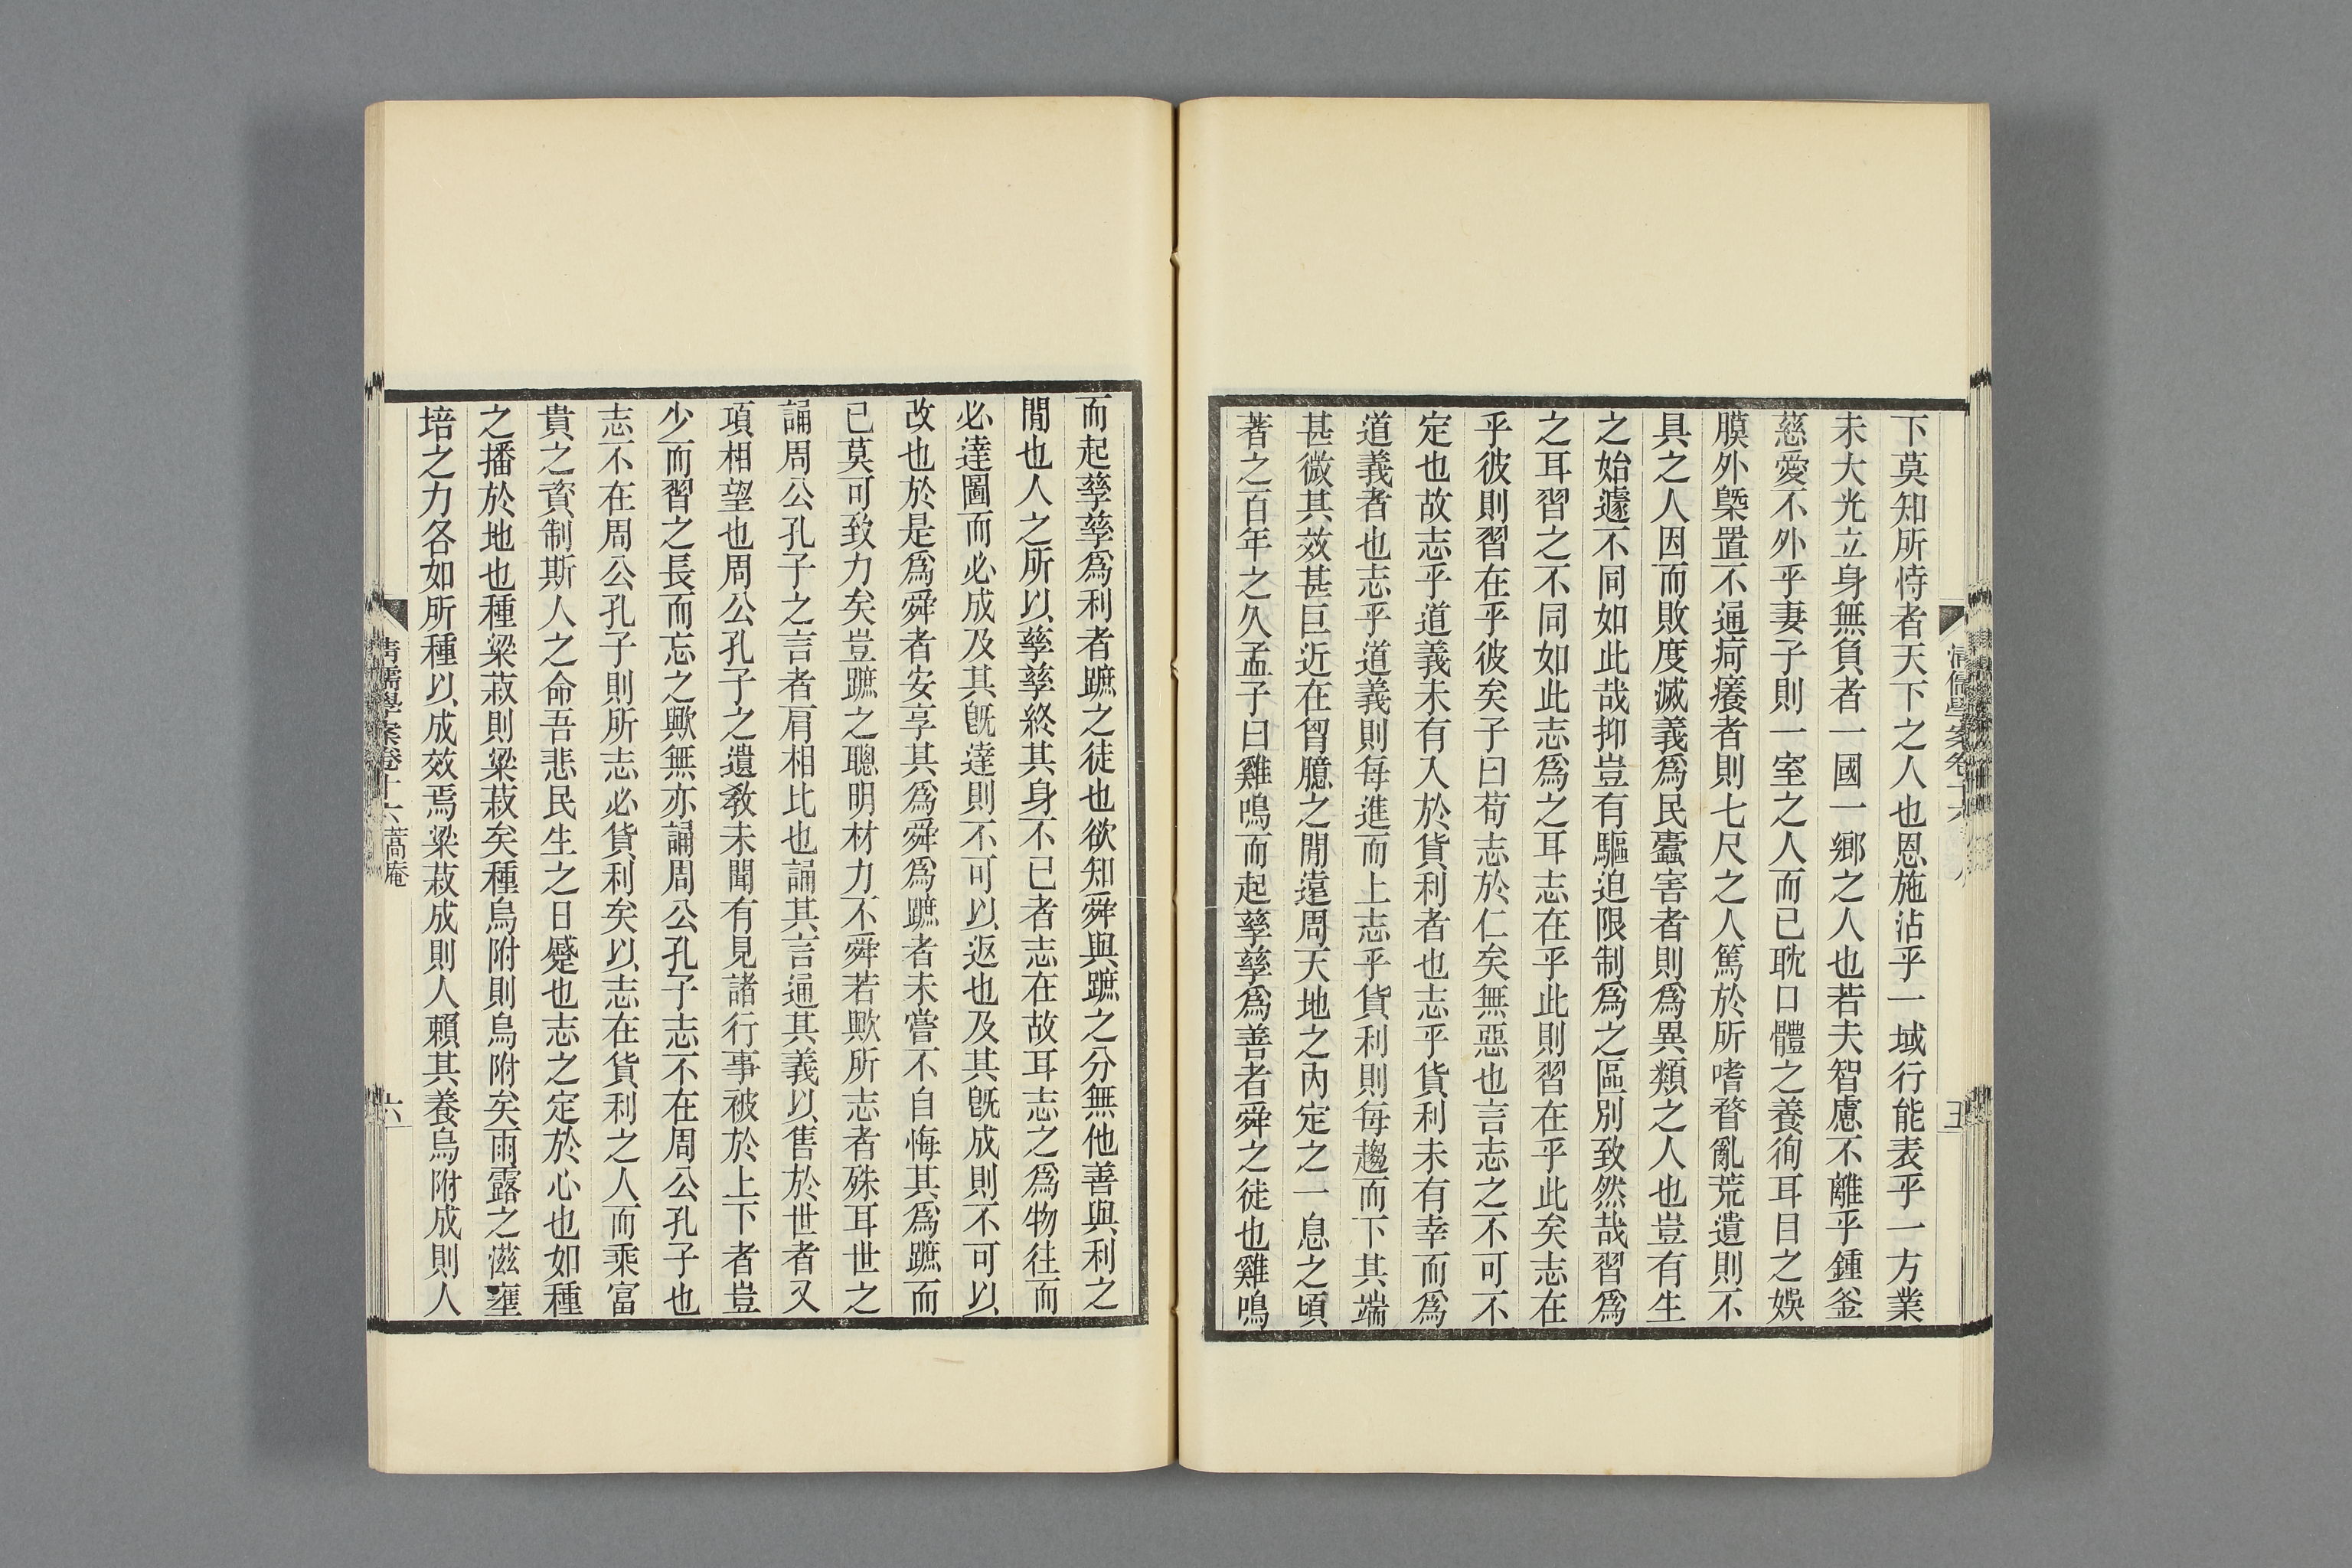 清儒學案卷十六
五
下莫知所恃者天下之人也恩施沾乎一域行能表乎一方業
未大光立身無負者一國一鄉之人也若夫智慮不離乎鍾釜
慈愛不外乎妻子則一室之人而已耽口體之養徇耳目之娛
膜外槩置不通疴癢者則七尺之人篤於所嗜瞀亂荒遺則不
具之人因而敗度滅義爲民蠹害者則爲異類之人也豈有生
之始遽不同如此哉抑豈有驅迫限制爲之區別致然哉習爲
之耳習之不同如此志爲之耳志在乎此則習在乎此矣志在
乎彼則習在乎彼矣子曰苟志於仁矣無惡也言志之不可不
定也故志乎道義未有入於貨利者也志乎貨利未有幸而爲
道義者也志乎道義則每進而上志乎貨利則每趨而下其端
甚微其效甚巨近在胷臆之閒遠周天地之內定之一息之頃
著之百年之久孟子曰雞鳴而起孳孳爲善者舜之徒也雞鳴
而起孳孳爲利者蹠之徒也欲知舜與蹠之分無他善與利之
閒也人之所以孳孳終其身不已者志在故耳志之爲物往而
必達圖而必成及其旣達則不可以返也及其旣成則不可以
改也於是爲舜者安享其爲舜爲蹠者未嘗不自悔其爲蹠而
已莫可致力矣豈蹠之聰明材力不舜若歟所志者殊耳世之
誦周公孔子之言者肩相比也誦其言通其義以售於世者又
項相望也周公孔子之遺敎未聞有見諸行事被於上下者豈
少而習之長而忘之歟無亦誦周公孔子志不在周公孔子也
志不在周公孔子則所志必貨利矣以志在貨利之人而乘富
貴之資制斯人之命吾悲民生之日蹙也志之定於心也如種
之播於地也種粱菽則粱菽矣種烏附則烏附矣雨露之滋壅
培之力各如所種以成效焉粱菽成則人賴其養烏附成則人
清儒學案卷十六 蒿庵
六